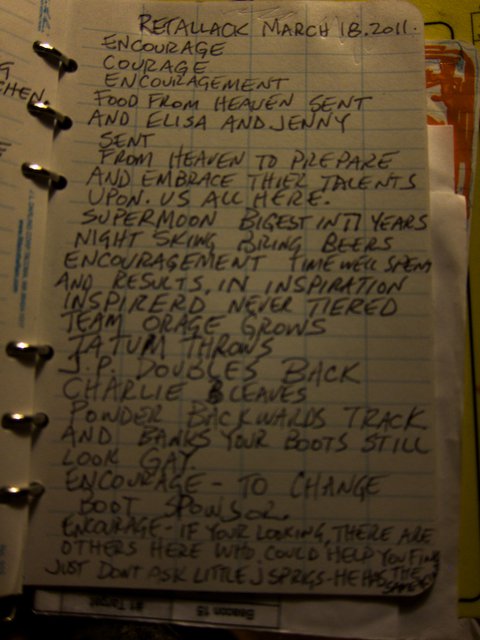 RETALLACK MARCH 18.2011.
ENCOURAGE
COURAGE
ENCOURAGEMENT
FOOD FROM HEAVEN SENT
AND ELISA AND JENNY
SENT
FROM HEAVEN TO PREPARE
AND EMBRACE THIER TALENTS
UPON. US ALL HERE.
SUPERMOON BIGEST IN 17 YEARS
NIGHT SKING BRING BEERS
ENCOURAGEMENT TIME WELL SPENT
AND RESULTS, IN INSPIRATION
INSPIRERD NEVER TIERED
TEAM ORAGE GROWS
TATUM THROWS
J.P. DOUBLES BACK
CHARLIE CLEAVES
POWDER BACKWARDS TRACK
AND BANKS YOUR BOOTS STILL
LOOK GAY.
ENCOURAGE - TO CHANGE
BOOT SPONSOR.
ENCOURAGE - IF YOUR LOOKING, THERE ARE
OTHERS HERE WHO COULD HELP YOU FIND
JUST DONT ASK LITTLE J SPRGS - HE HAS THE
SAME
#1 Target
Beacon 15